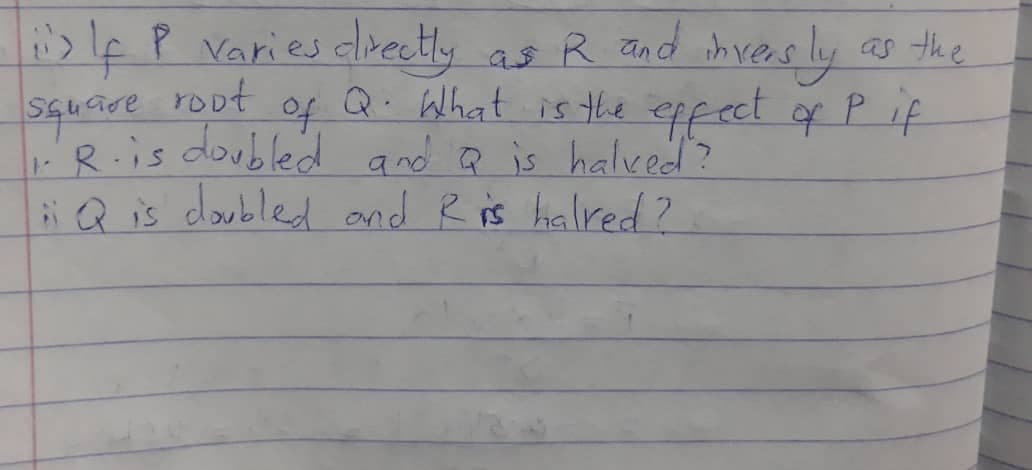 ii) If P varies directly as R and inversly as the
square root of Q. What is the effect of P if
i. R. is doubled and Q is halved?
ii Q is doubled and R is halved?